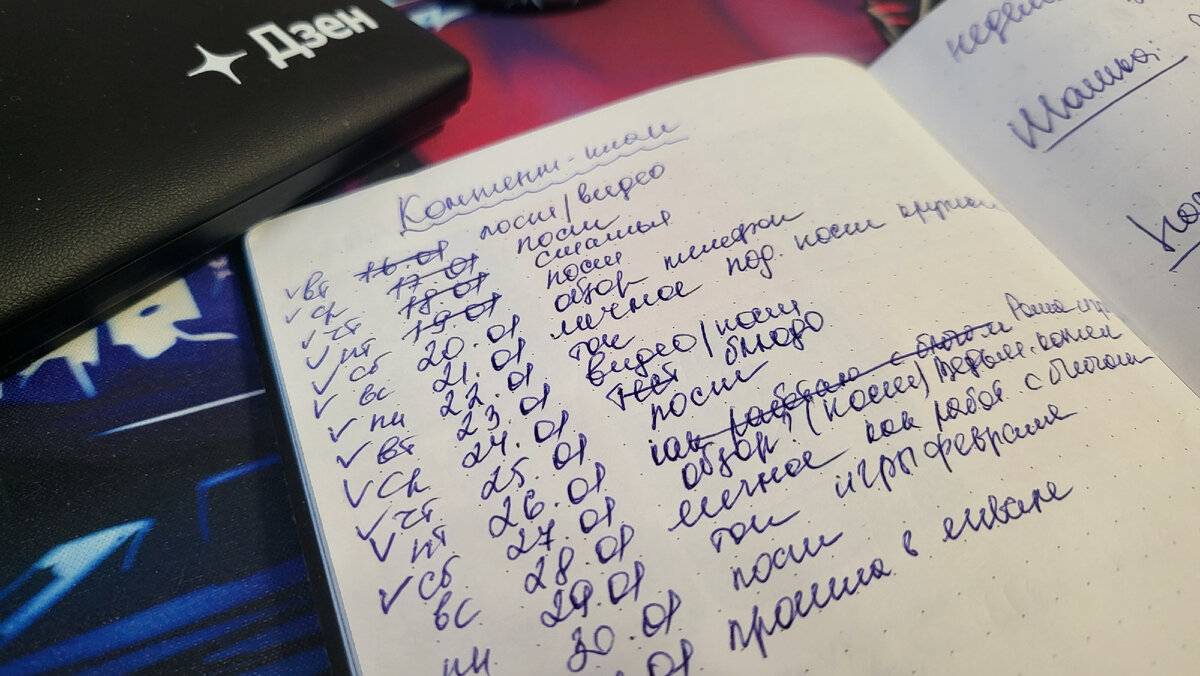 Дзен
Контент-план
вт 16.01 пост/видео
ср 17.01 пост
чт 18.01 статья
пт 19.01 пост
сб 20.01 обзор
вс 21.01 личное под. пост
пн 22.01 топ
вт 23.01 видео/пост
ср 24.01 нет блюдо
чт 25.01 пост
пт 26.01 как работаю с блогом
сб 27.01 обзор (пост)
вс 28.01 личное как работ с блогом
пн 29.01 топ игры февраля
30.01 пост
.01 прошла в январе
недели
Шапка: